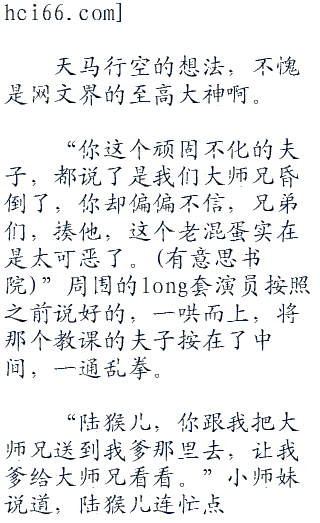 hci66.com]
天马行空的想法，不愧
是网文界的至高大神啊。
“你这个顽固不化的夫
子，都说了是我们大师兄昏
倒了，你却偏偏不信，兄弟
们，揍他，这个老混蛋实在
是太可恶了。(有意思书
院)”周围的long套演员按照
之前说好的，一哄而上，将
那个教课的夫子按在了中
间，一通乱拳。
“陆猴儿，你跟我把大
师兄送到我爹那里去，让我
爹给大师兄看看。”小师妹
说道，陆猴儿连忙点